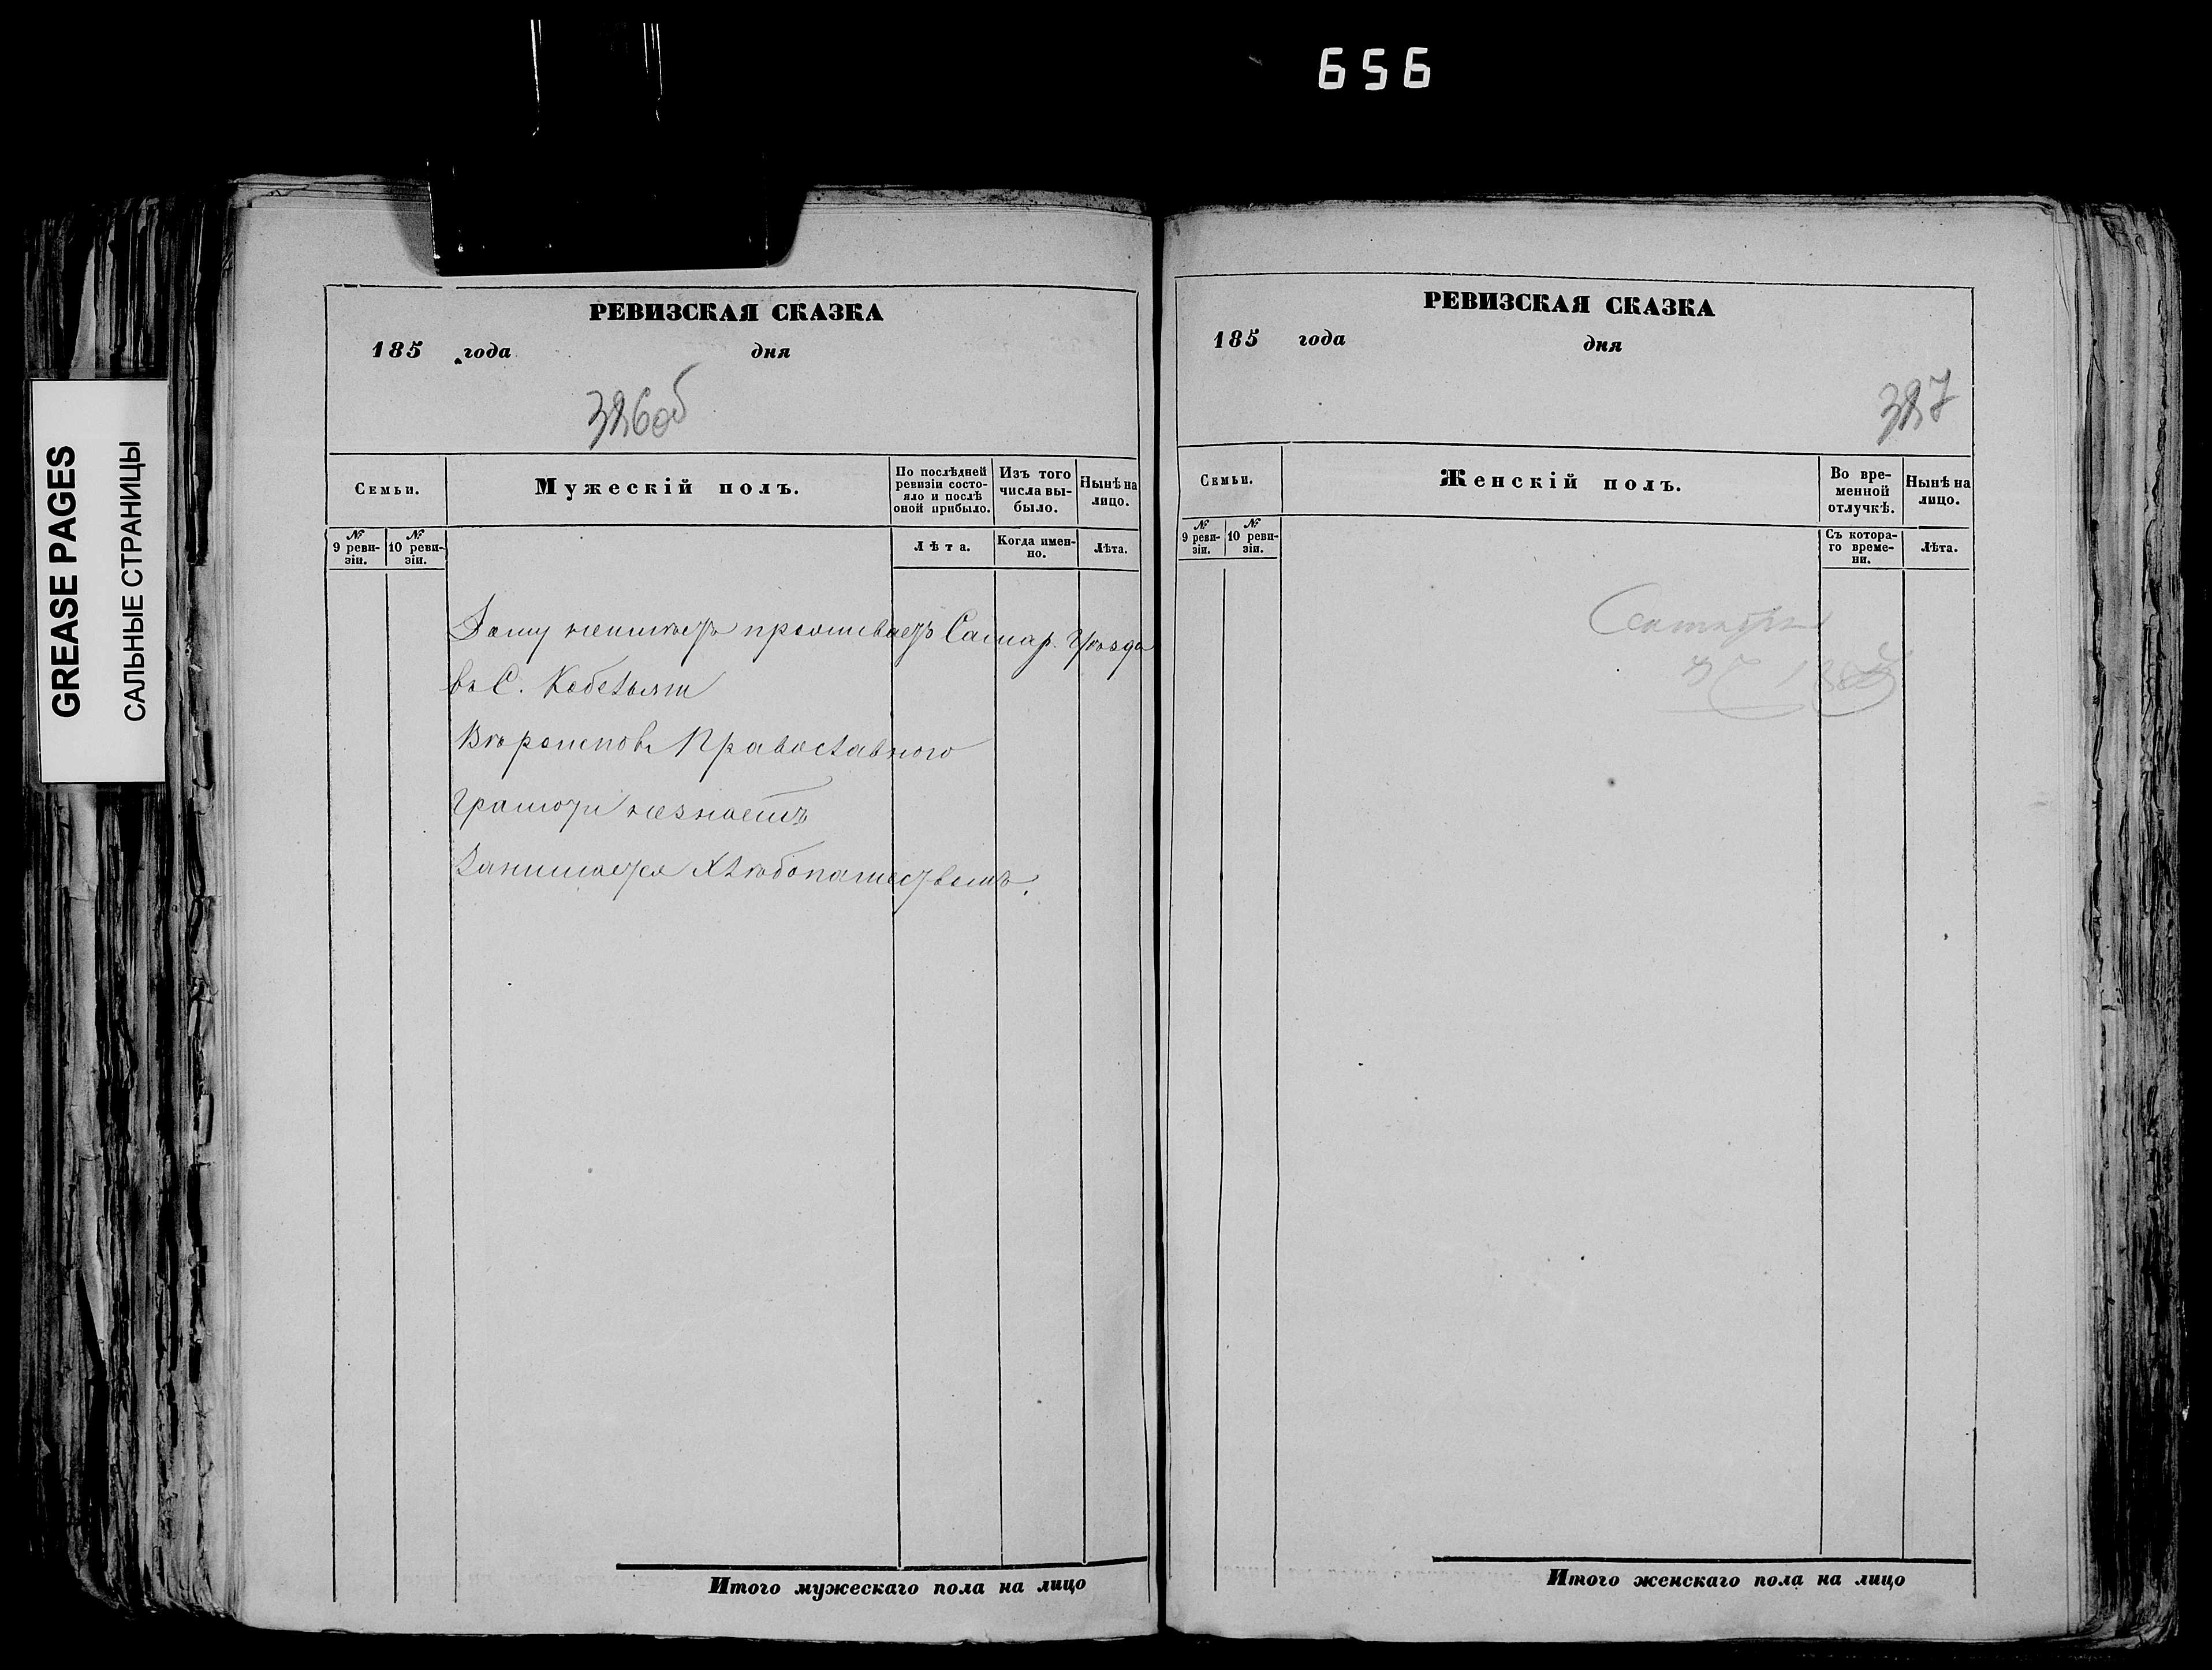 656
GREASE PAGES
САЛЬНЫЕ СТРАНИЦЫ
РЕВИЗСКАЯ СКАЗКА
185 года дня
386об
Семьи.
Мужескій полъ.
По послѣдней ревизіи состояло и послѣ оной прибыло.
Изъ того числа выбыло.
Нынѣ на лицо.
№ 9 ревизіи.
№ 10 ревизіи.
Лѣта.
Когда именно.
Лѣта.
Дому неимѣетъ проживаетъ Самар. Уѣзда
въ С.
Вѣроисповѣ Православного
грамоты незнаетъ
Занимается Хлѣбопашествомъ.
Итого мужескаго пола на лицо
РЕВИЗСКАЯ СКАЗКА
185 года дня
387
Семьи.
Женскій полъ.
Во временной отлучкѣ.
Нынѣ на лицо.
№ 9 ревизіи.
№ 10 ревизіи.
Съ котораго времени.
Лѣта.
Итого женскаго пола на лицо